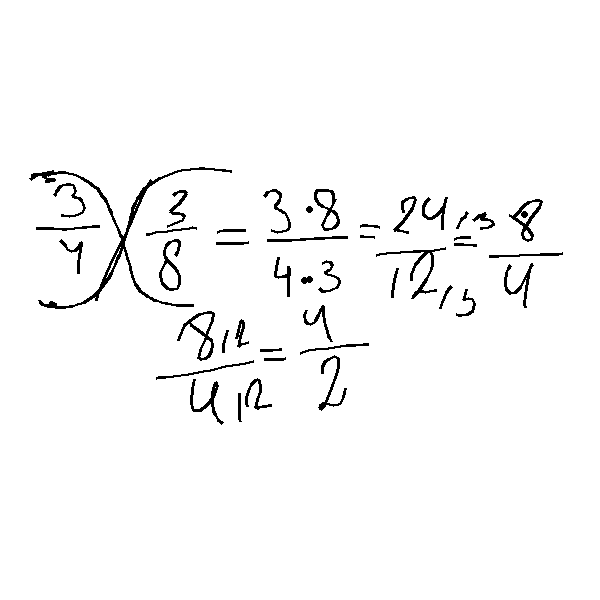 3/4 3/8 = 3·8/4·3 = 24,3/12,3 = 8/4
8,2/4,2 = 4/2